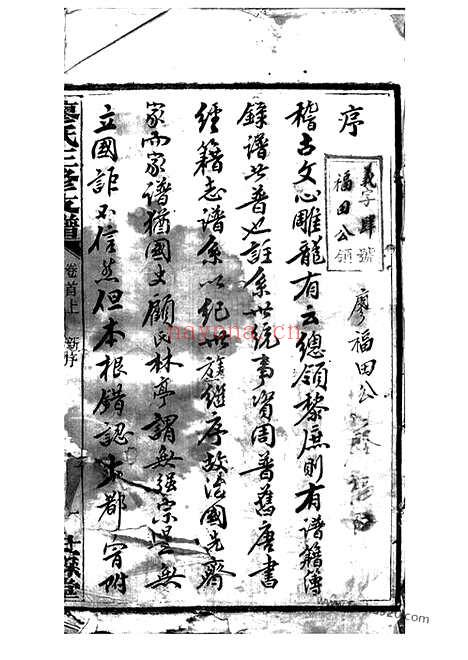 序
義字肆號
福田公領
廖福田公
稽古文心雕龍有云總領黎庶則有谱籍簿
錄谱者普也註系世统事資周普舊唐書
經籍志谱系以纪世族继序故治國先齊
家而家谱猶國史顧氏林亭謂無强宗是無
立國詎不信然但本根錯認 郡
廖氏三修支譜
卷首上
新序
nayona.cn